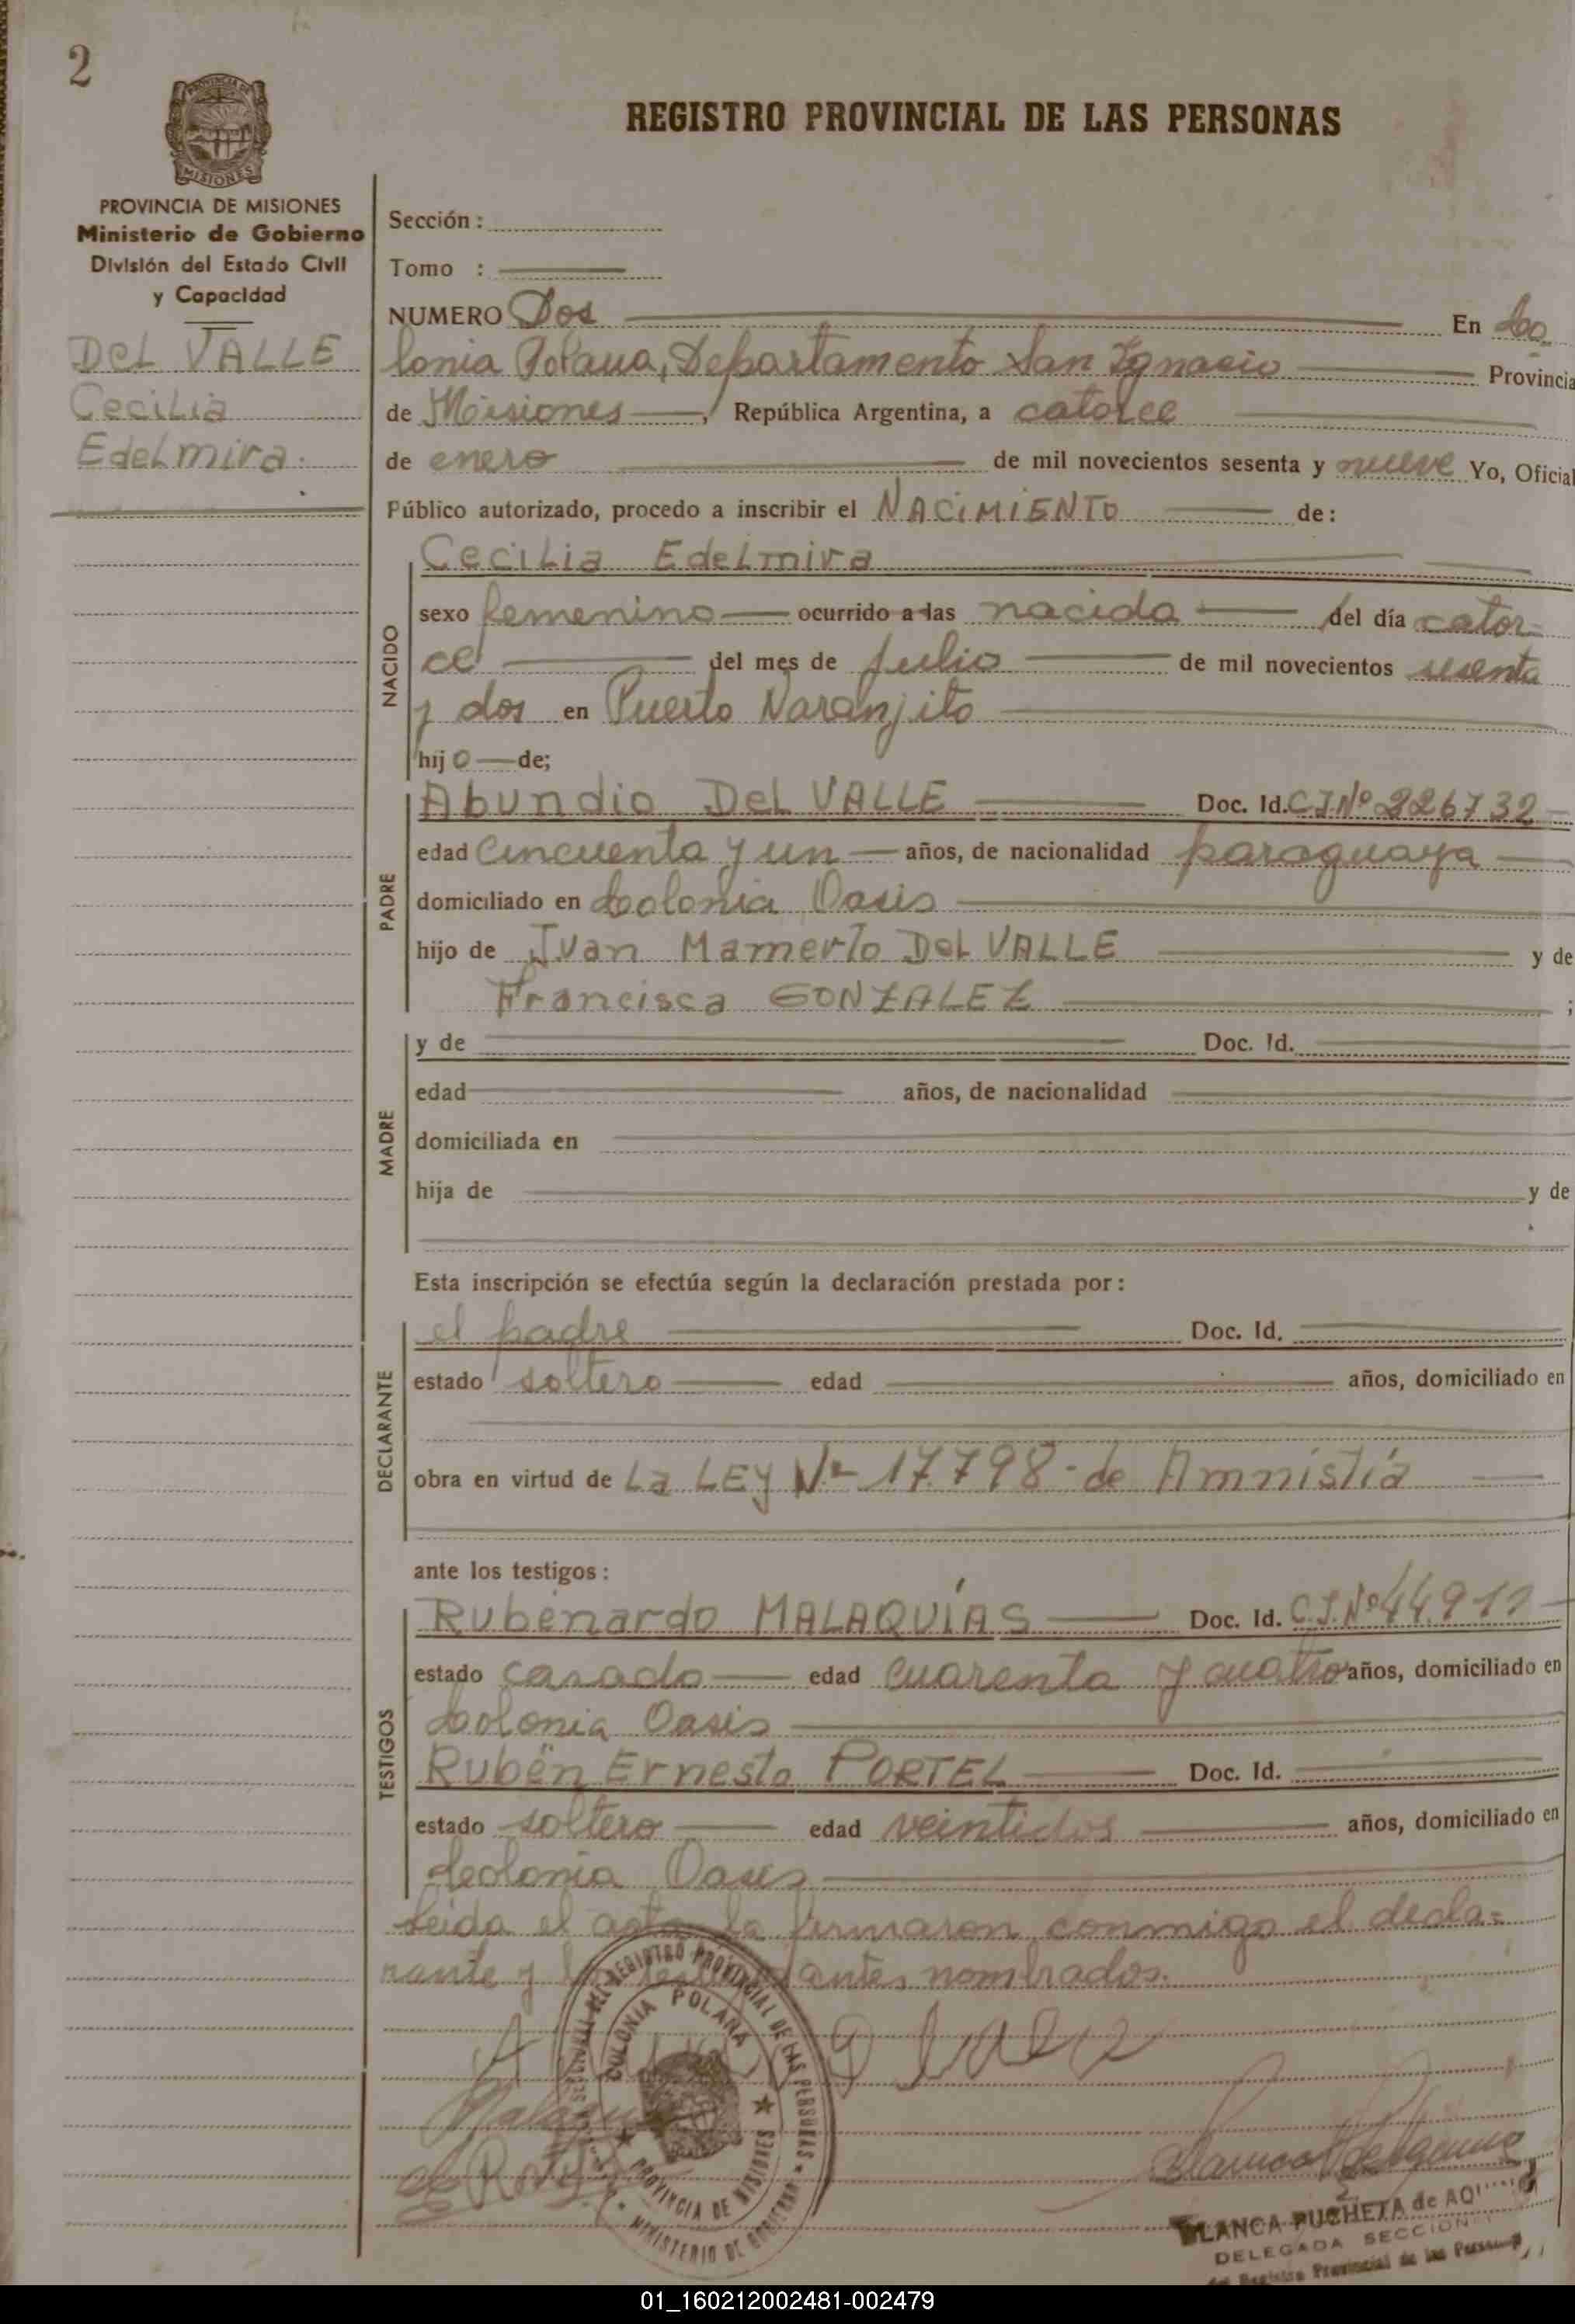 2
PROVINCIA DE
MISIONES
REGISTRO PROVINCIAL DE LAS PERSONAS
PROVINCIA DE MISIONES
Ministerio de Gobierno
División del Estado Civil
y Capacidad
DEL VALLE
Cecilia
Edelmira.
Sección :
Tomo :
NUMERO Dos En Co
lonia Polana, Departamento San Ignacio Provincia
de Misiones, República Argentina, a catorce
de enero de mil novecientos sesenta y nueve Yo, Oficial
Público autorizado, procedo a inscribir el NACIMIENTO de:
NACIDO
Cecilia Edelmira
sexo femenino ocurrido a las nacida del día cator
ce del mes de julio de mil novecientos sesenta
y dos en Puerto Naranjito
hijo de;
PADRE
Abundio DEL VALLE Doc. Id. C.I.Nº 226732
edad cincuenta y un años, de nacionalidad paraguaya
domiciliado en Colonia Oasis
hijo de Juan Mamerto DEL VALLE y de
Francisca GONZALEZ ;
MADRE
y de Doc. Id.
edad años, de nacionalidad
domiciliada en
hija de y de
Esta inscripción se efectúa según la declaración prestada por:
DECLARANTE
el padre Doc. Id.
estado soltero edad años, domiciliado en
obra en virtud de La LEY Nº 17.798 - de Amnistía
ante los testigos:
TESTIGOS
Rubenardo MALAQUÍAS Doc. Id. C.I.Nº 44.911
estado casado edad cuarenta y cuatro años, domiciliado en
Colonia Oasis
Rubén Ernesto PORTEL Doc. Id.
estado soltero edad veintidos años, domiciliado en
Colonia Oasis
Leida el acta la firmaron conmigo el decla=
rante y antes nombrados.
REGISTRO PROVINCIAL DE LAS PERSONAS
COLONIA POLANA
PROVINCIA DE MISIONES
MINISTERIO DE GOBIERNO
BLANCA PUCHETA de
DELEGADA SECCION
del Registro Provincial de las Personas
01_160212002481-002479